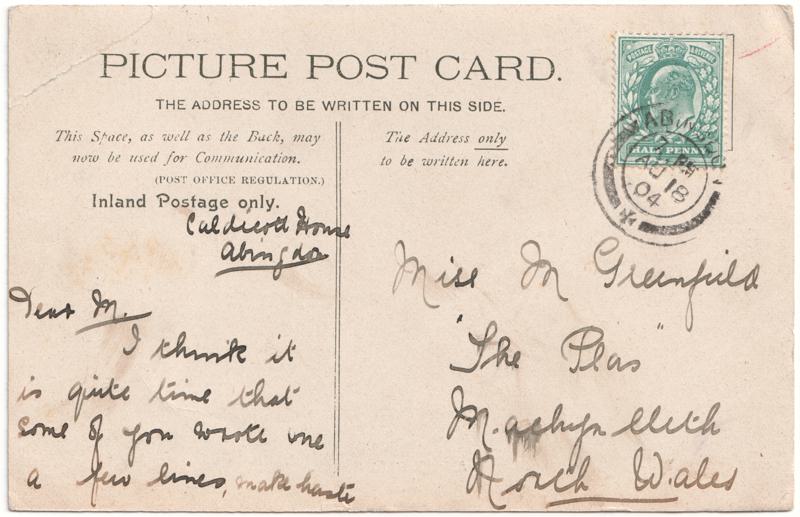 PICTURE POST CARD.
THE ADDRESS TO BE WRITTEN ON THIS SIDE.
This Space, as well as the Back, may
now be used for Communication.
(POST OFFICE REGULATION.)
Inland Postage only.
Caldicott House
Abingdon
Dear M.
I think it
is quite time that
some of you wrote me
a few lines, make haste
The Address only
to be written here.
POSTAGE REVENUE
HALF PENNY
ABINGDON
AU 18
04
Miss M Greenfield
"The Plas"
Machynlleth
North Wales